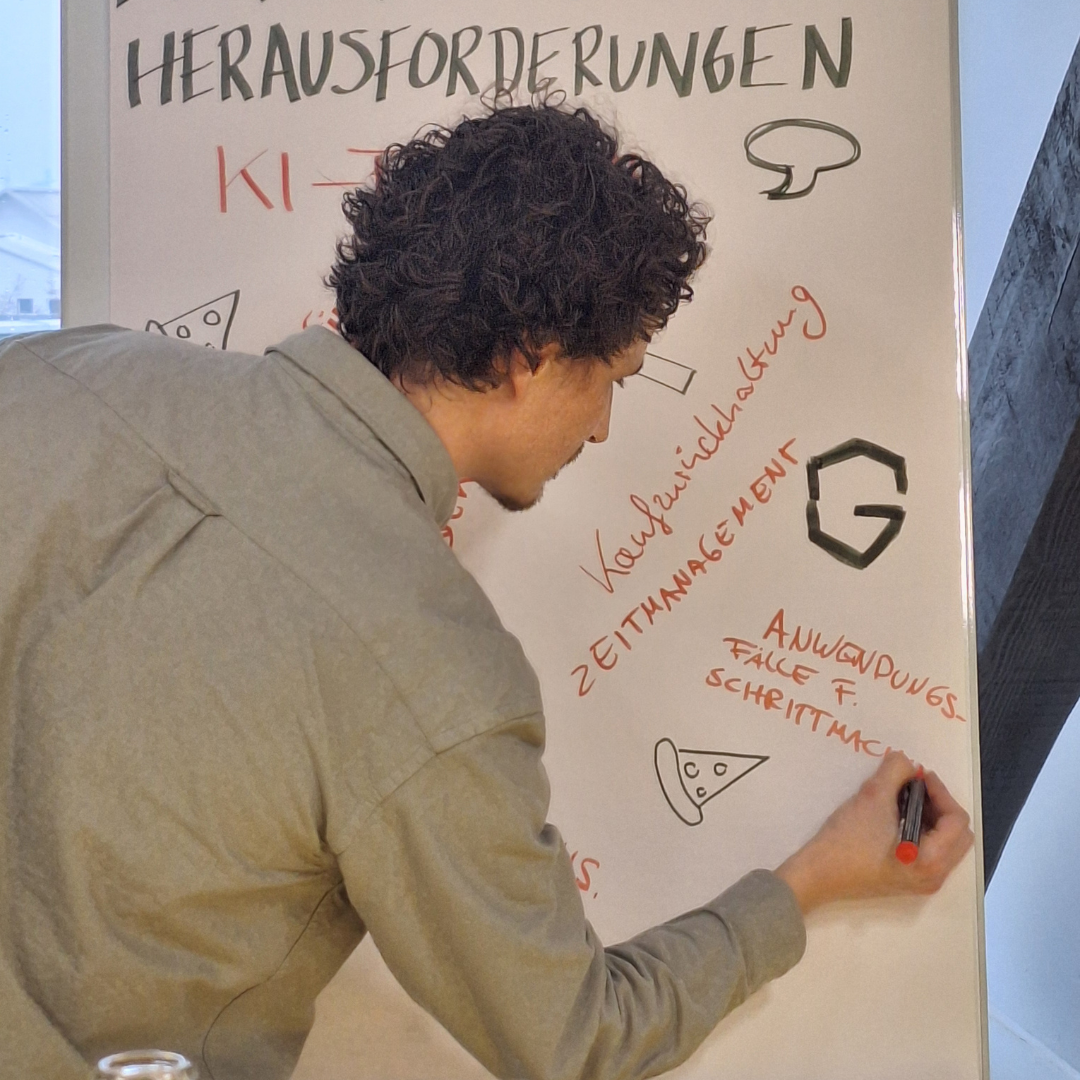 HERAUSFORDERUNGEN
KI
Kaufzurückhaltung
ZEITMANAGEMENT
G
ANWENDUNGS-
FÄLLE F.
SCHRITTMAC